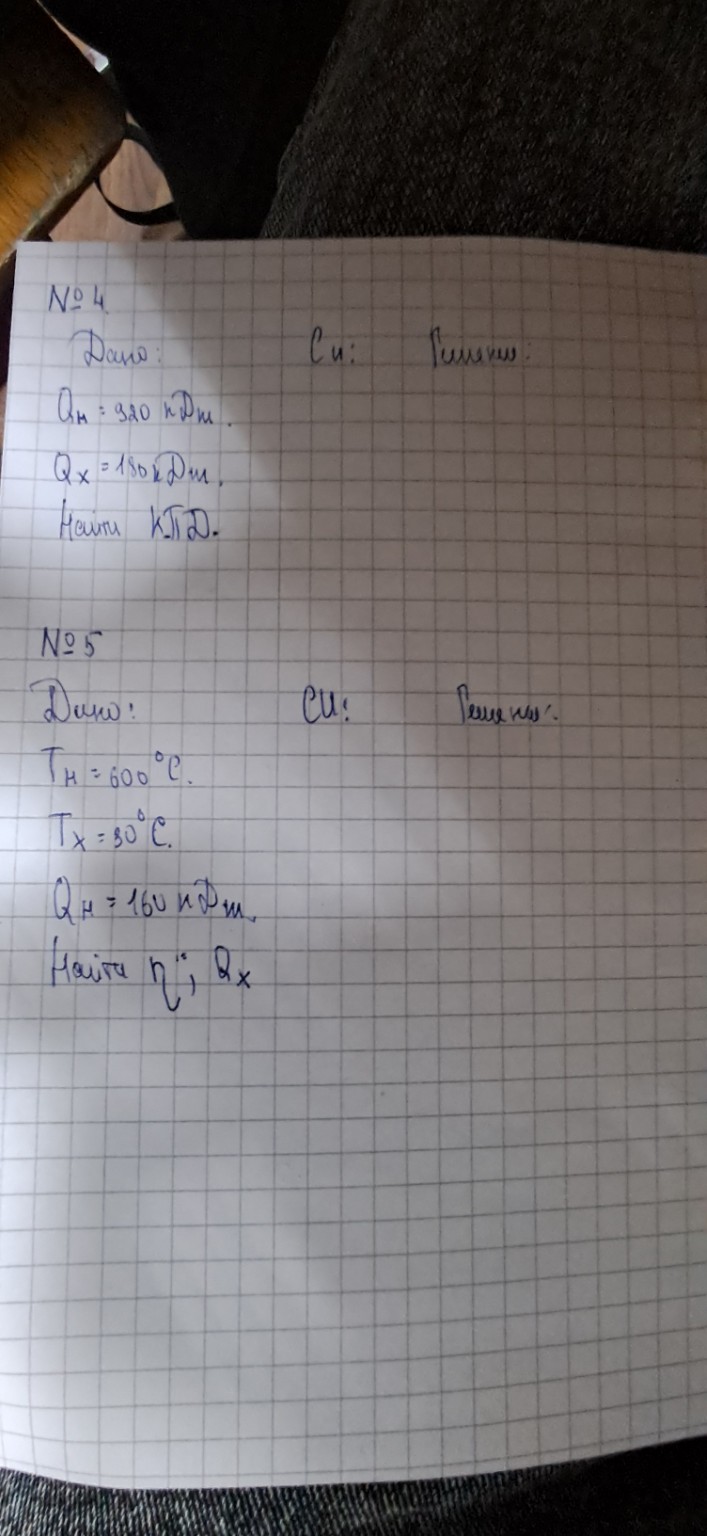 №4
Дано: Си: Решение:
Qн = 320 кДж.
Qх = 180 кДж.
Найти КПД.
№5
Дано: СИ: Решение:
Tн = 600°C.
Tх = 30°C.
Qн = 160 кДж.
Найти η; Qх